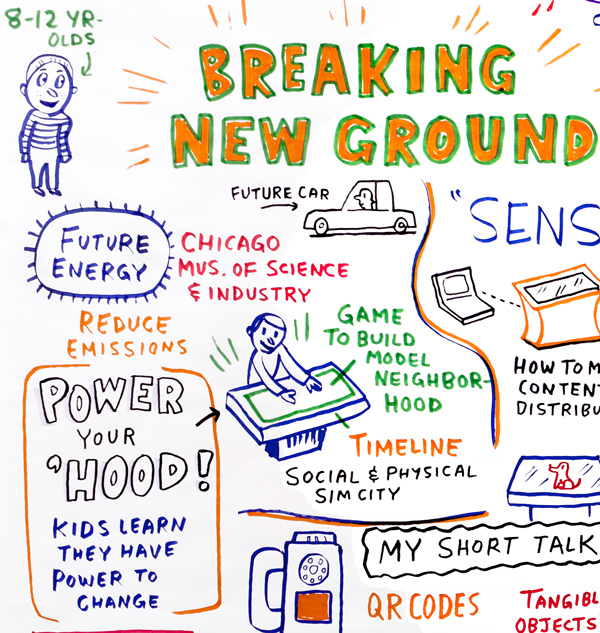 8-12 YR-
OLDS
BREAKING
NEW GROUND
FUTURE CAR
FUTURE
ENERGY
CHICAGO
MUS. OF SCIENCE
& INDUSTRY
REDUCE
EMISSIONS
GAME
TO BUILD
MODEL
NEIGHBOR-
HOOD
TIMELINE
SOCIAL & PHYSICAL
SIM CITY
POWER
YOUR
'HOOD!
KIDS LEARN
THEY HAVE
POWER TO
CHANGE
"SENS
HOW TO M
CONTEN
DISTRIBU
MY SHORT TALK
QR CODES
TANGIBL
OBJECTS